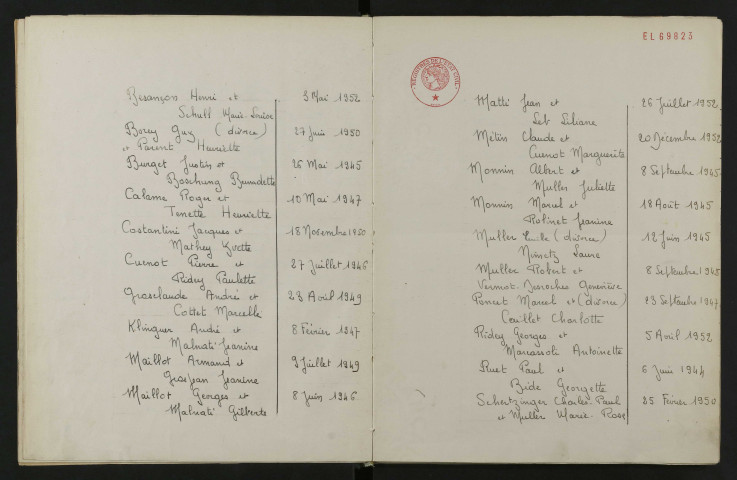 Besançon Henri et 3 Mai 1952
Schull Marie-Louise
Boray Guy (divorce) 27 Juin 1950
et Parent Henriette
Burget Justin et 26 Mai 1945
Boschung Bernadette
Calame Roger et 10 Mai 1947
Tenette Henriette
Costantini Jacques et 18 Novembre 1950
Mathey Yvette
Cuenot Pierre et 27 Juillet 1946
Ridey Paulette
Grosclaude André et 23 Avril 1949
Cottet Marcelle
Klinguer André et 8 Février 1947
Malnati Jeanine
Maillot Armand et 9 Juillet 1949
Grosjean Jeanine
Maillot Georges et 8 Juin 1946
Malnati Gilberte
EL69823
Matti Jean et 26 Juillet 1952
Liliane
Métin Claude et 20 Décembre 1952
Cuenot Marguerite
Monnin Albert et 8 Septembre 1945
Muller Juliette
Monnin Marcel et 18 Août 1945
Robinet Jeanine
Muller Emile (divorce) 12 Juin 1945
Laure
Muller Robert et 8 Septembre 1945
Vermot-Desroches Geneviève
Poncet Marcel et (divorce) 23 Septembre 1947
Couillet Charlotte
Ridey Georges et 5 Avril 1952
Manassoti Antoinette
Ruet Paul et 6 Juin 1944
Bide Georgette
Schertzinger Charles-Paul 25 Février 1950
et Muller Marie-Rose